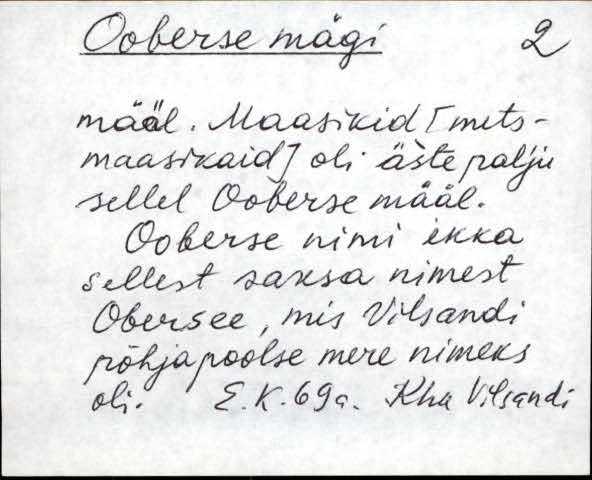 Ooberse mägi 2
määl. Maasikid [mets-
maasikaid] oli äste palju
sellel Ooberse määl.
Ooberse nimi ikka
sellest saksa nimest
Obersee, mis Vilsandi
põhjapoolse mere nimeks
oli. E.K. 69 a. Khu Vilsandi